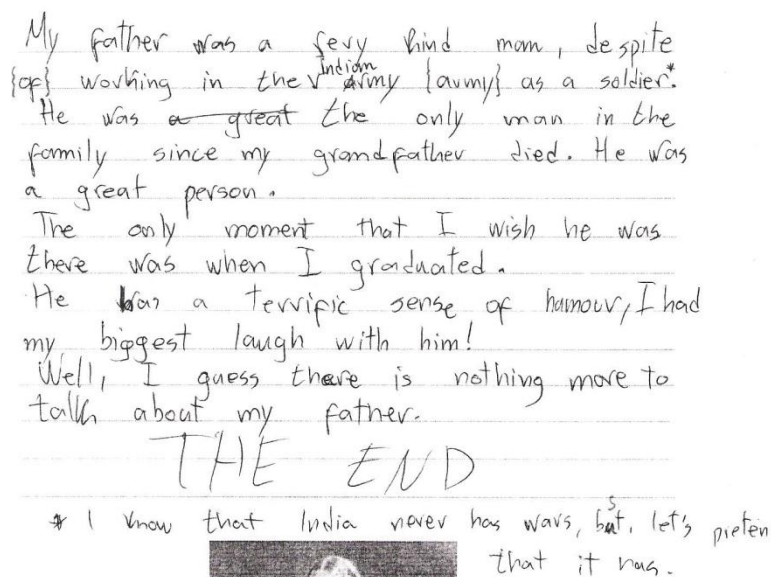 My father was a fery kind man, despite
{of} working in the Indian army {army} as a soldier.*
He was a great the only man in the
family since my grandfather died. He was
a great person.
The only moment that I wish he was
there was when I graduated.
He has a terrific sense of hamour, I had
my biggest laugh with him!
Well, I guess there is nothing more to
talk about my father.
THE END
* I know that India never has wars, but, let's preten
that it has.